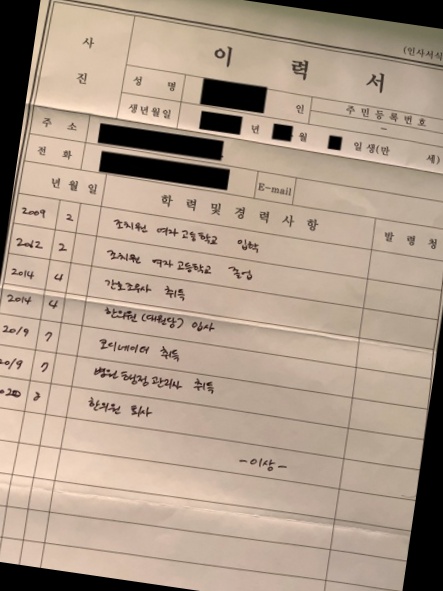 (인사서식
사 진
이 력 서
성 명
인
주 민 등 록 번 호
–
생년월일
년 월 일생(만 세)
주 소
전 화
E-mail
년 월 일
학 력 및 경 력 사 항
발 령 청
2009 2 조치원 여자 고등학교 입학
2012 2 조치원 여자 고등학교 졸업
2014 4 간호조무사 취득
2014 4 한의원 (대원당) 입사
2019 7 코디네이터 취득
2019 7 병원 행정 관리사 취득
한의원 퇴사
- 이상 -